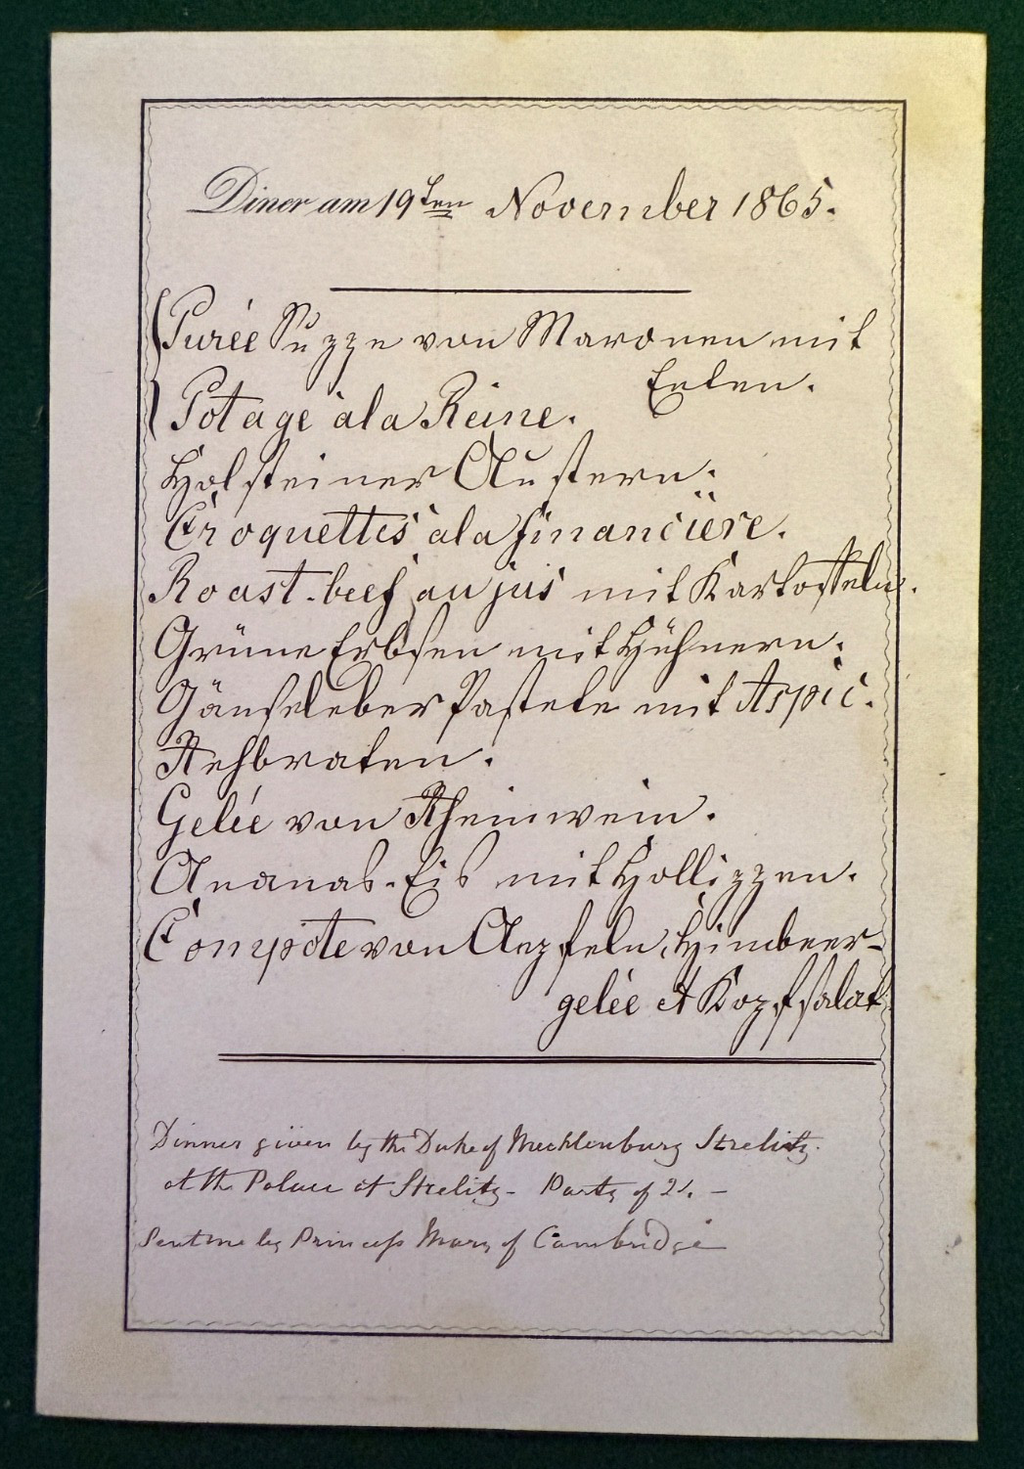 Diner am 19ten November 1865.
Purée Suppe von Maronen mit
Enten.
Potage à la Reine.
Holsteiner Austern.
Croquettes à la financière.
Roast-beef au jus mit Kartoffeln.
Grüne Erbsen mit Hühnern.
Gänseleber Pastete mit Aspic.
Rehbraten.
Gelée von Rheinwein.
Ananas-Eis mit Hollippen.
Compote von Aepfeln, Himbeer-
gelée et Kopfsalat
Dinner given by the Duke of Mecklenburg Strelitz.
at the Palace at Strelitz - Party of -
Sent me by Princess Mary of Cambridge